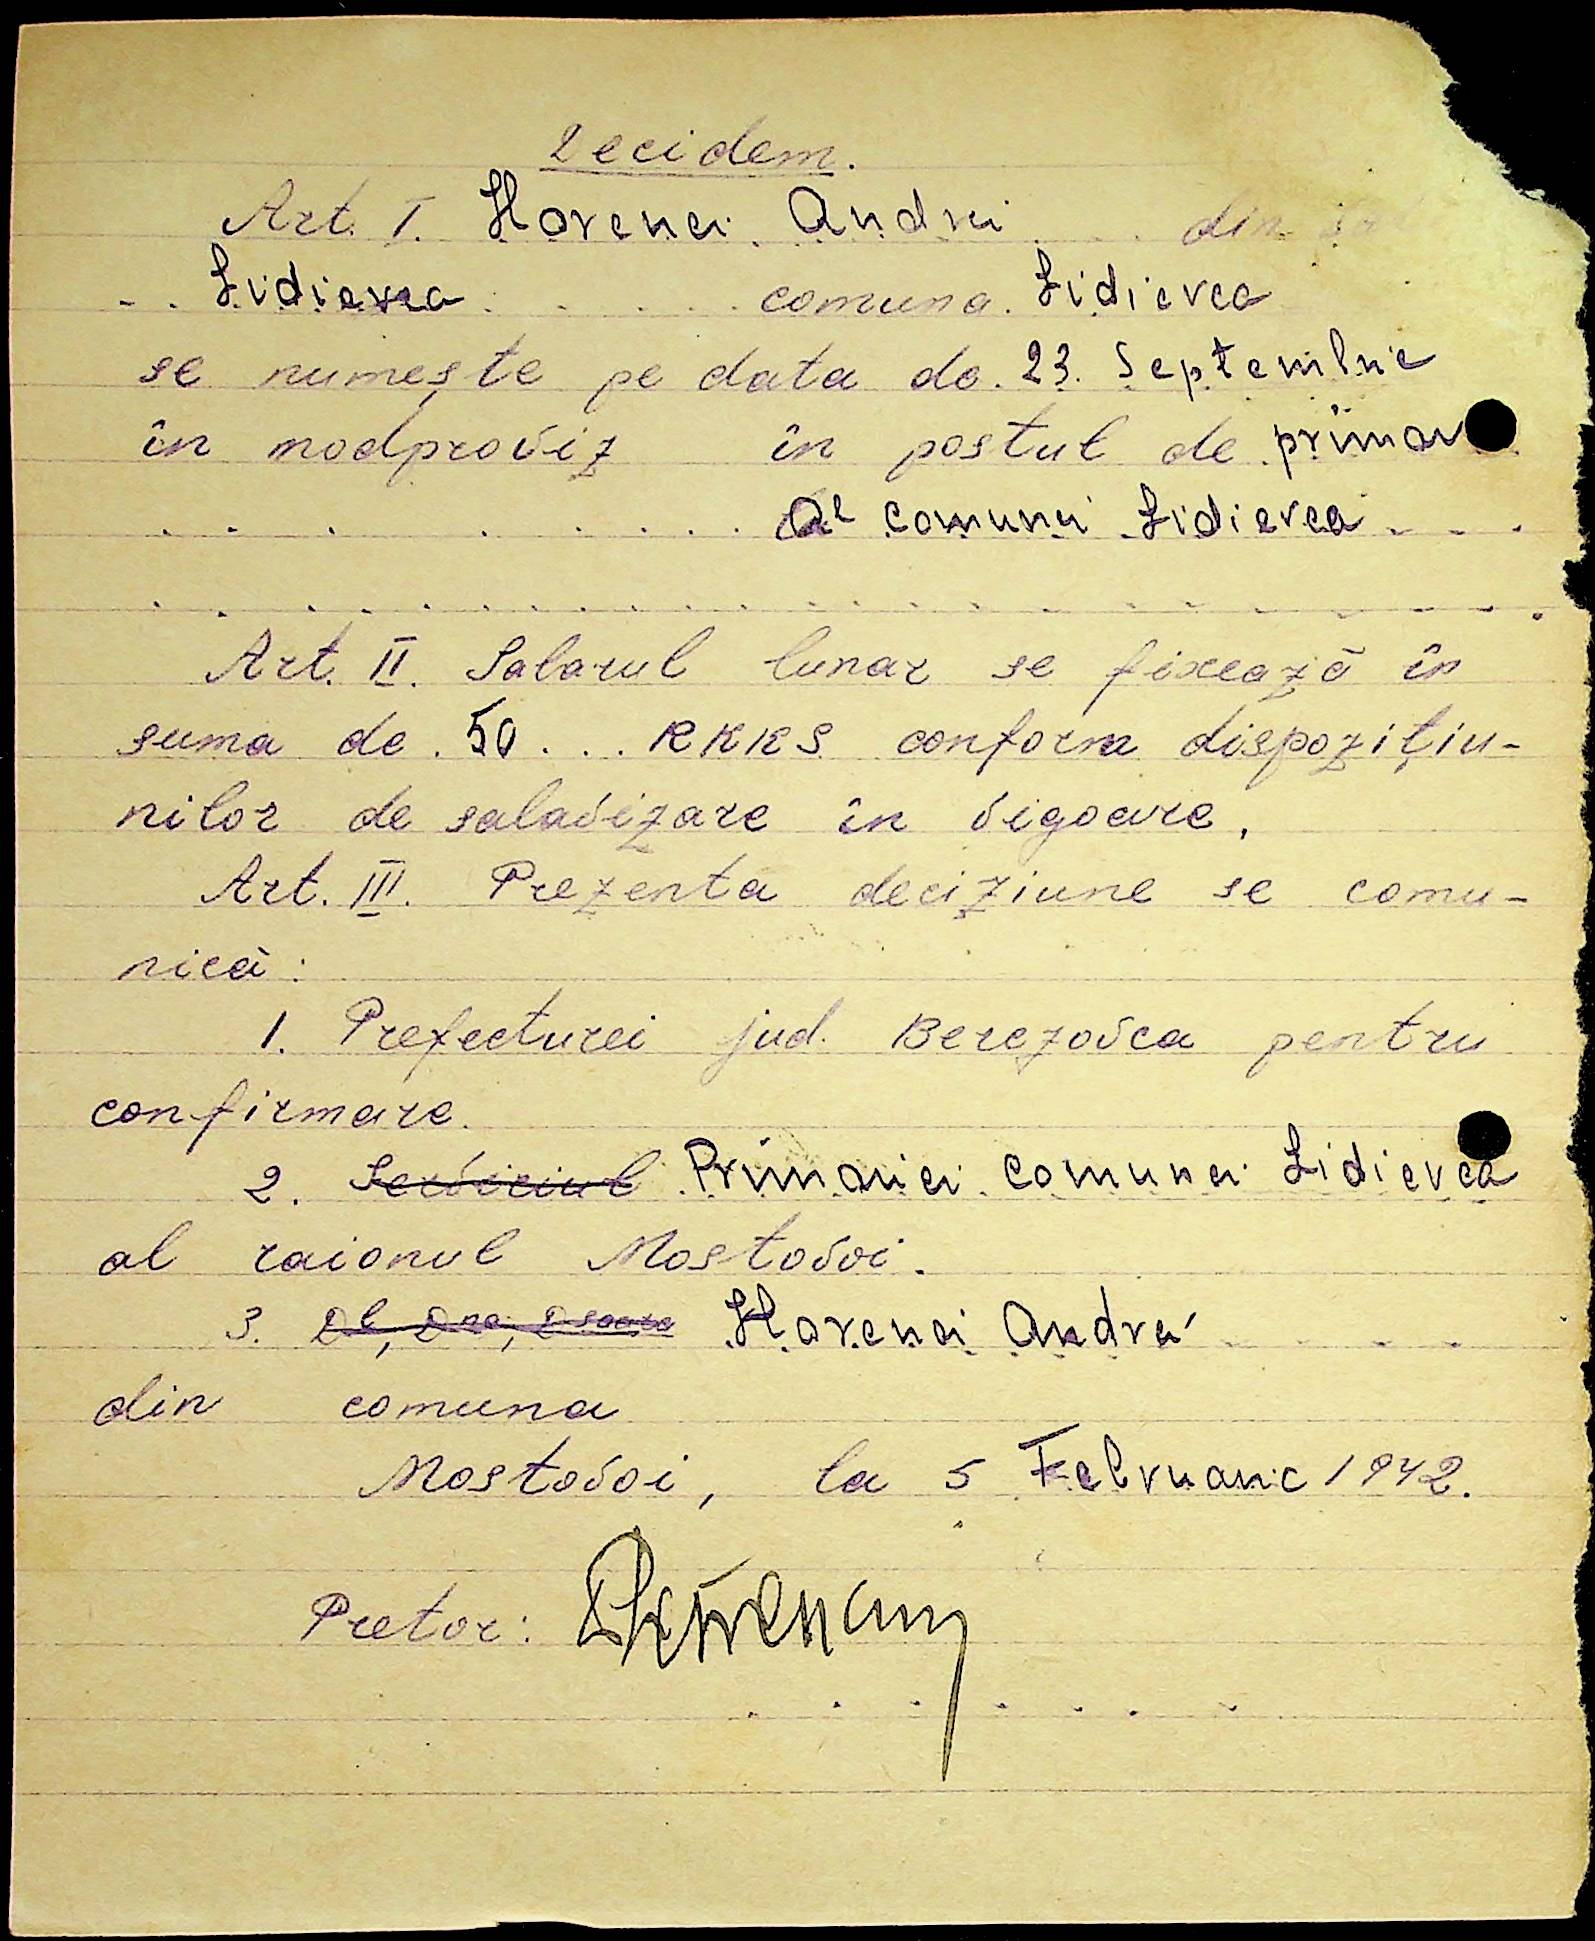 Decidem.
Art. I. Horenci Andrei din
Lidievca comuna Lidievca
se numeşte pe data de 23. Septembrie
în modproviz în postul de primar
al comunei Lidievca
Art. II. Salarul lunar se fixează în
suma de 50 RKKS conform dispoziţiu-
nilor de salavizare în vigoare,
Art. III. Prezenta deciziune se comu-
nică:
1. Prefecturei jud. Berezovca pentru
confirmare.
2. Serviciul Primariei comunei Lidievca
al raionul Mostovoi.
3. Dl, Dna, Dsoara Horenci Andrei
din comuna
Mostovoi, la 5 Februarie 1942.
Pretor: